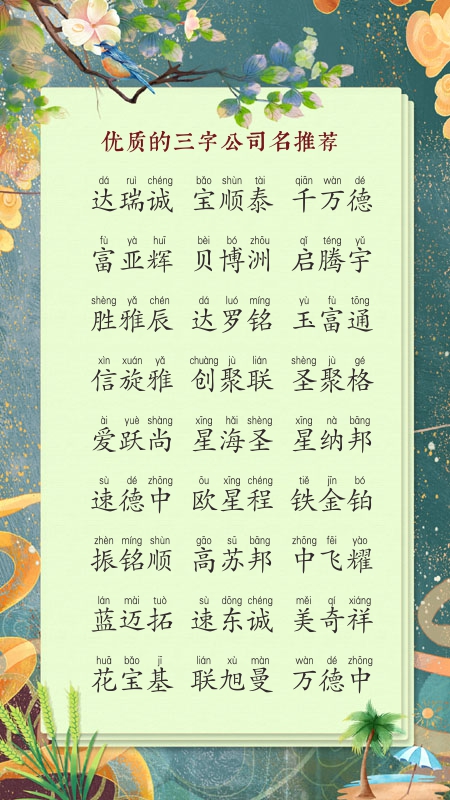 优质的三字公司名推荐
dá ruì chéng bǎo shùn tài qiān wàn dé
达瑞诚 宝顺泰 千万德
fù yà huī bèi bó zhōu qǐ téng yǔ
富亚辉 贝博洲 启腾宇
shèng yǎ chén dá luó míng yù fù tōng
胜雅辰 达罗铭 玉富通
xìn xuán yǎ chuàng jù lián shèng jù gé
信旋雅 创聚联 圣聚格
ài yuè shàng xīng hǎi shèng xīng nà bāng
爱跃尚 星海圣 星纳邦
sù dé zhōng ōu xīng chéng tiě jīn bó
速德中 欧星程 铁金铂
zhèn míng shùn gāo sū bāng zhōng fēi yào
振铭顺 高苏邦 中飞耀
lán mài tuò sù dōng chéng měi qí xiáng
蓝迈拓 速东诚 美奇祥
huā bǎo jī lián xù màn wàn dé zhōng
花宝基 联旭曼 万德中